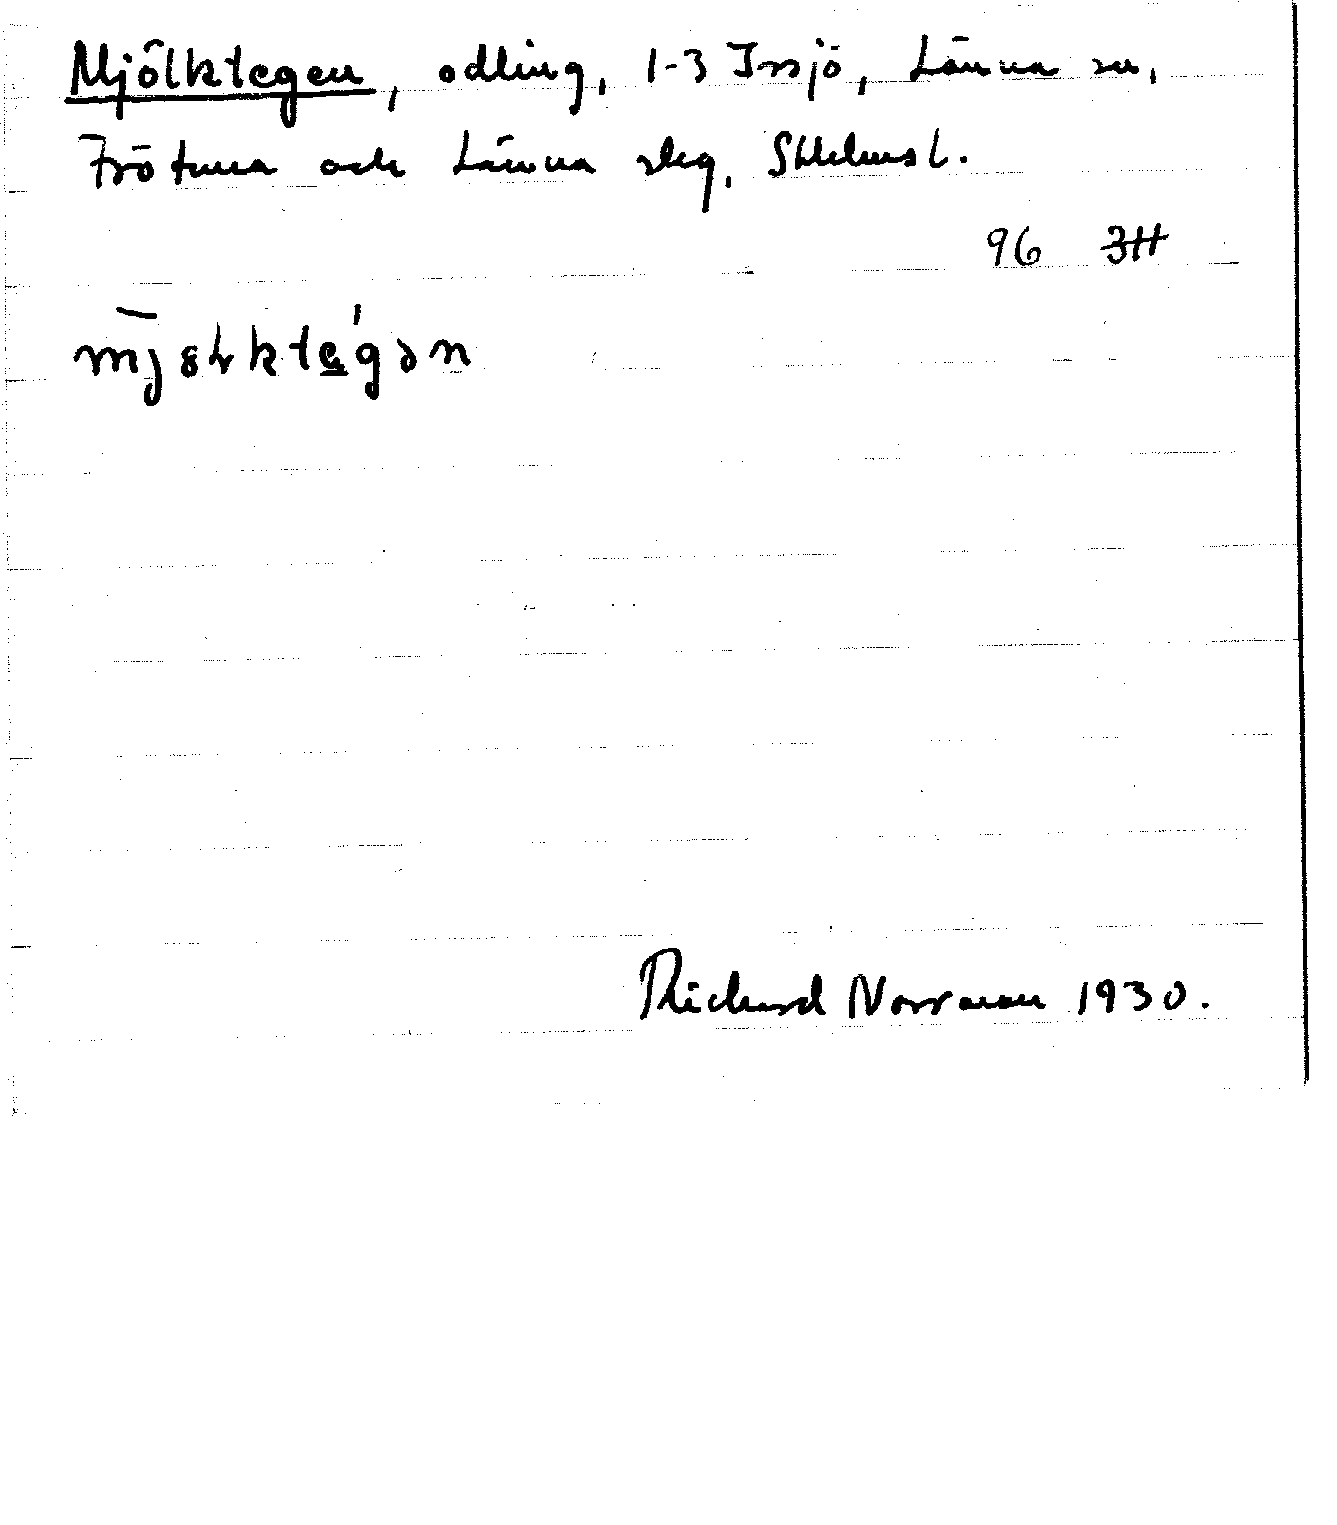 Mjölktegen, odling, 1-3 Issjö, Länna sn,
Frötuna och Länna skg, Sthlms l.
96 3H
mjɞɫktegən
Richard Norrman 1930.